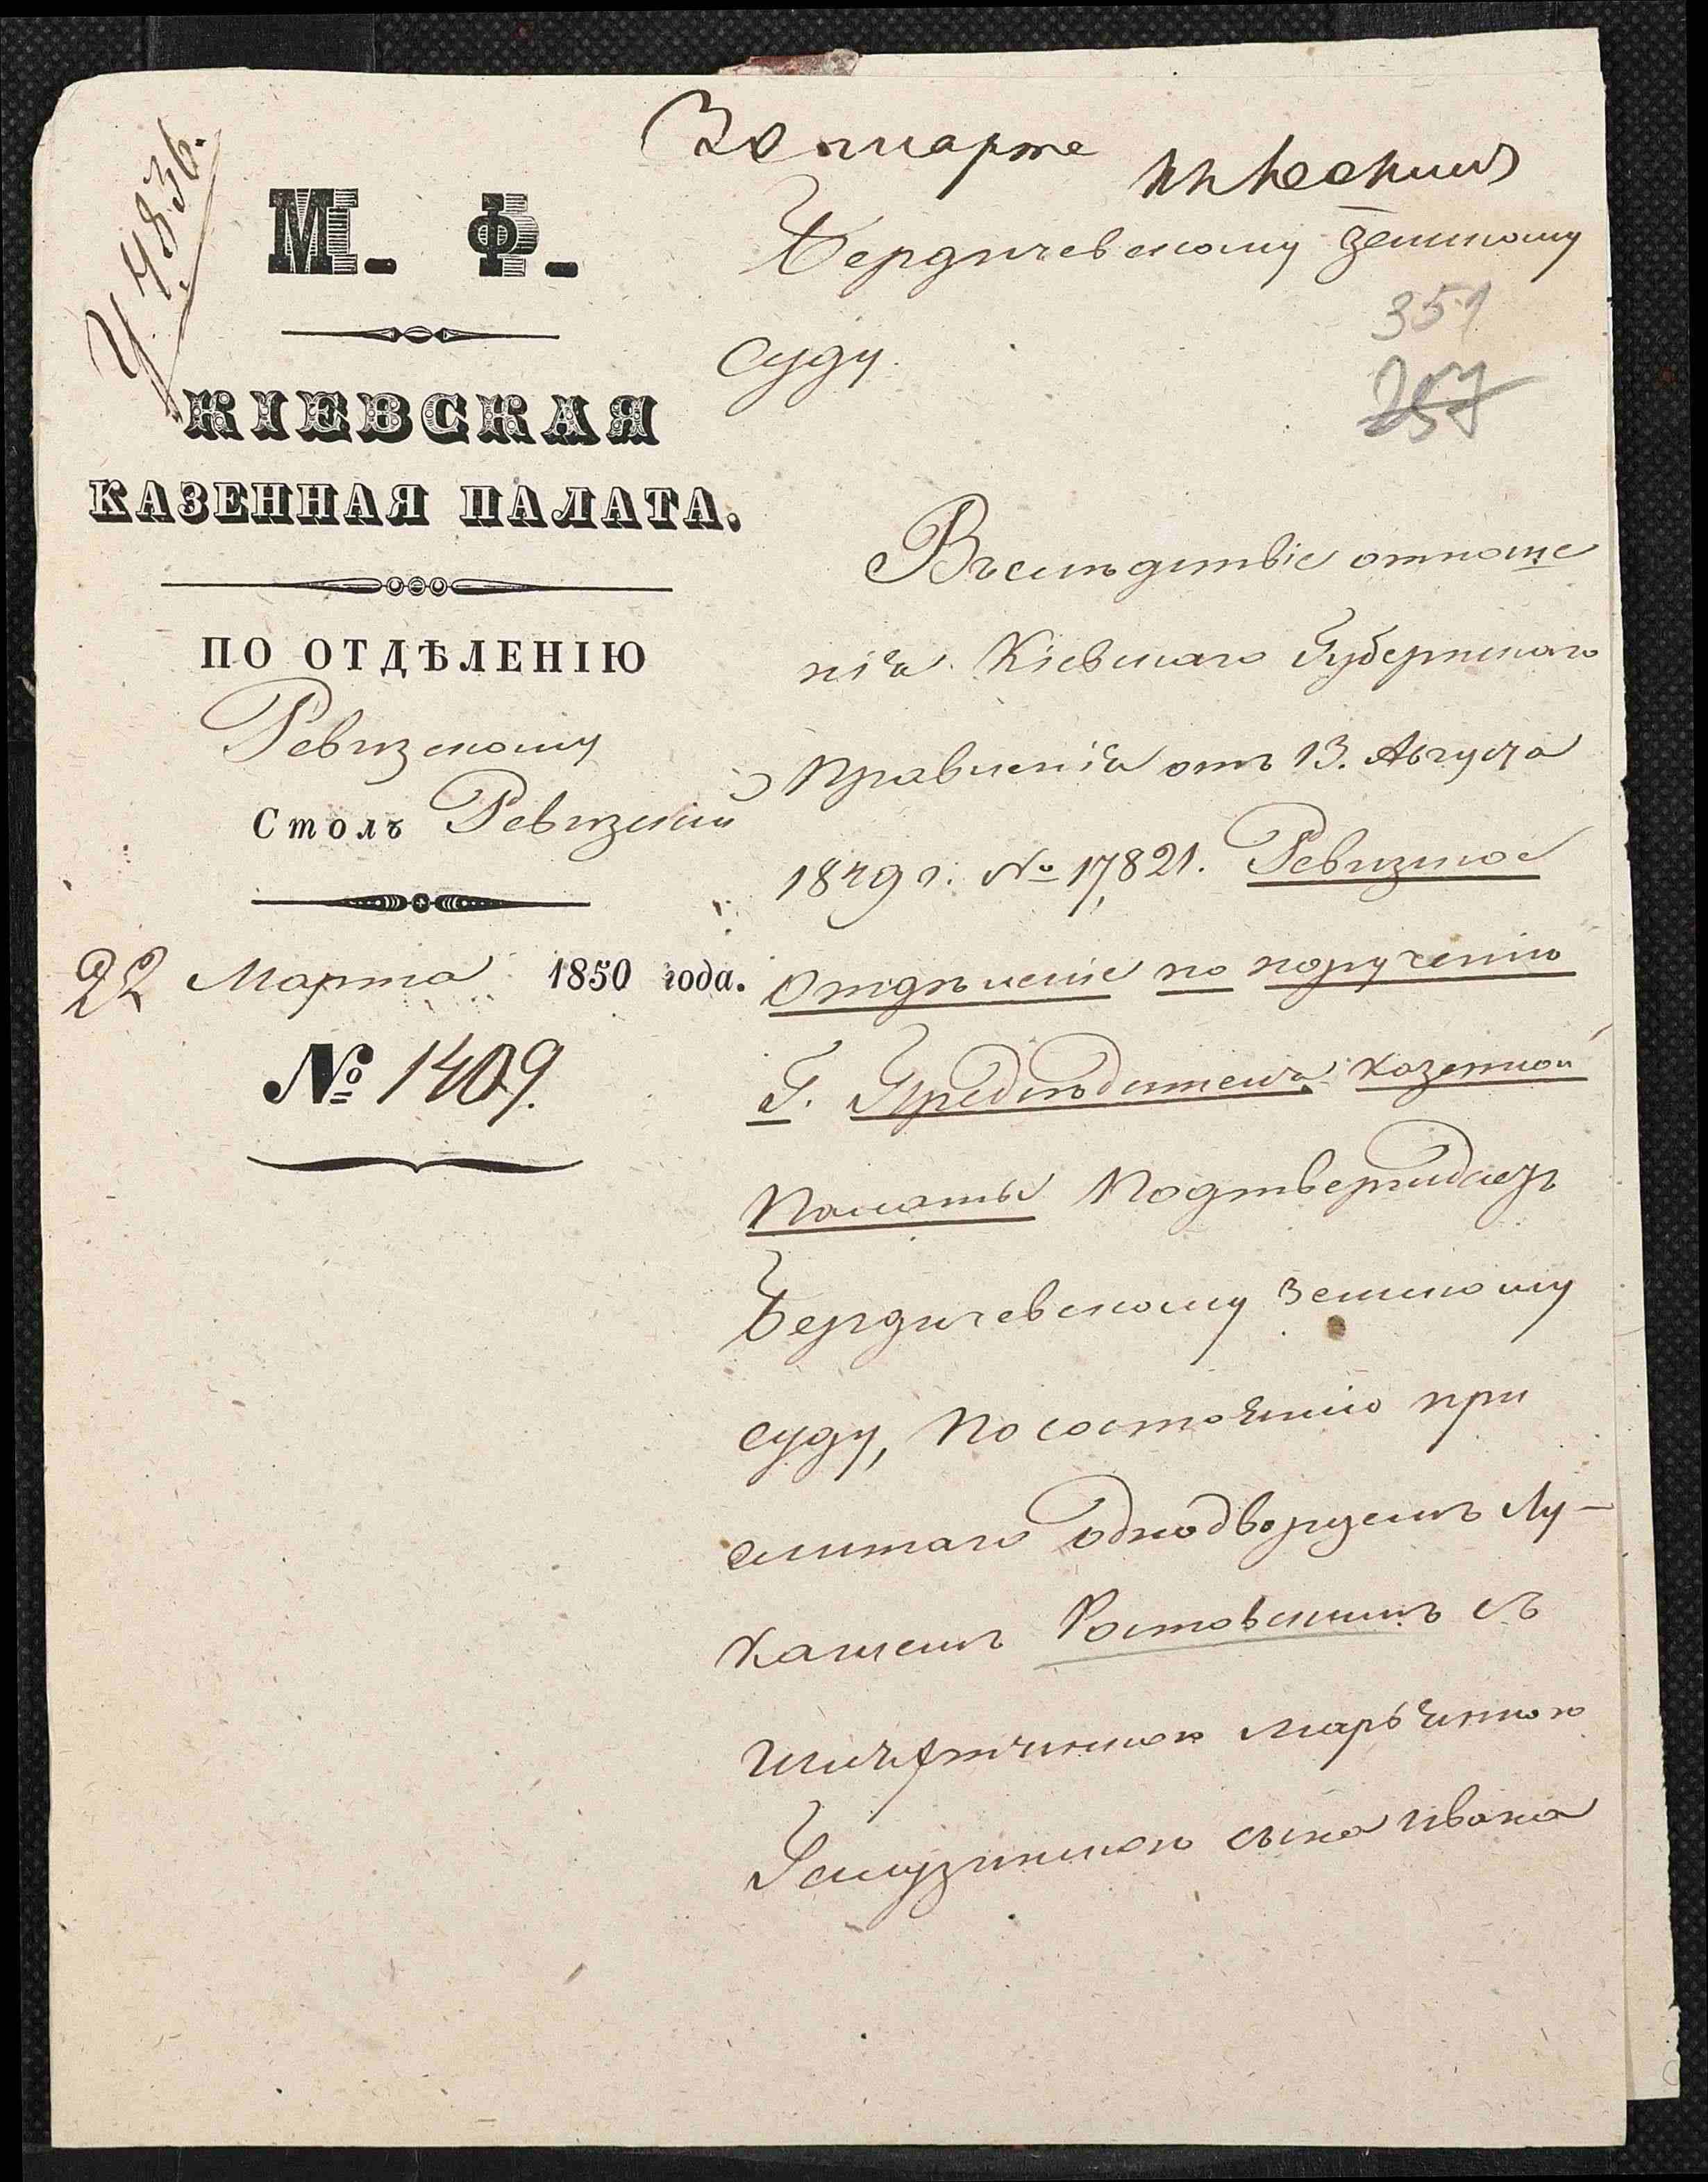 Ч. 4836.
30 марта
М. Ф.
КІЕВСКАЯ
КАЗЕННАЯ ПАЛАТА.
ПО ОТДѢЛЕНІЮ
Ревизскому
Столъ Ревизскій
22 Марта 1850 года.
№ 1409.
Бердичевскому Земскому
Суду.
351
257
Въслѣдствіе отноше
нія Кіевскаго Губернскаго
Правленія отъ 13. Августа
1849 г. № 17,821. Ревизское
Отдѣленіе по порученію
Г. Предсѣдателя Казенной
Палаты подтверждаетъ
Бердичевскому Земскому
суду, по состоянію при
сыланаго Однодворцемъ Лу-
кашемъ Ростовскимъ съ
шляхтянкою Маріянною
сына Ивана